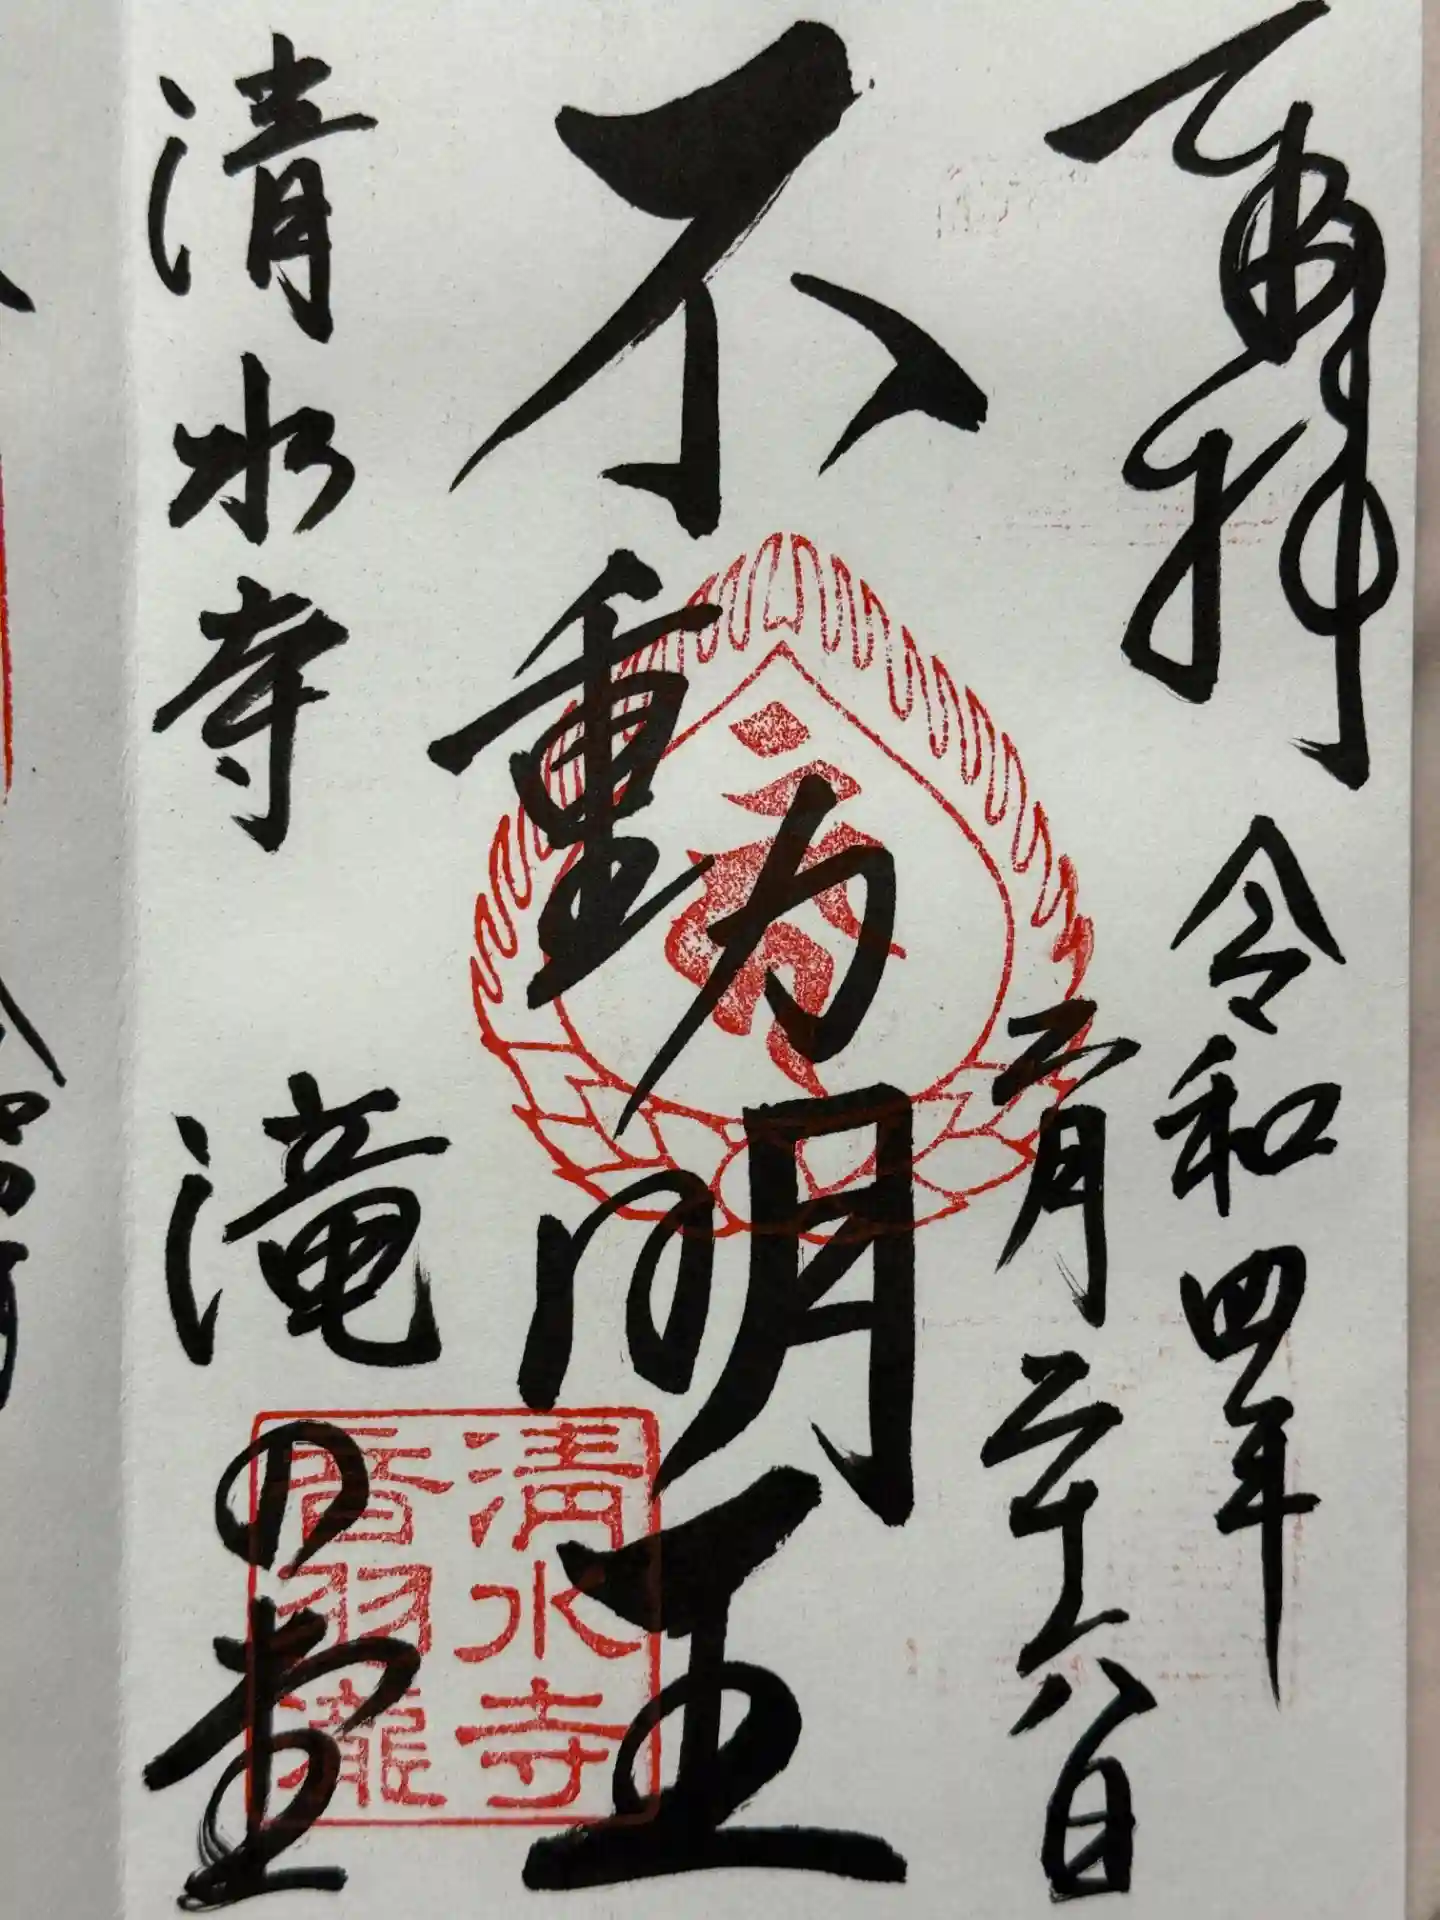 奉拝
令和四年
二月二十六日
不動明王
清水寺
滝の堂
清水寺
音羽瀧